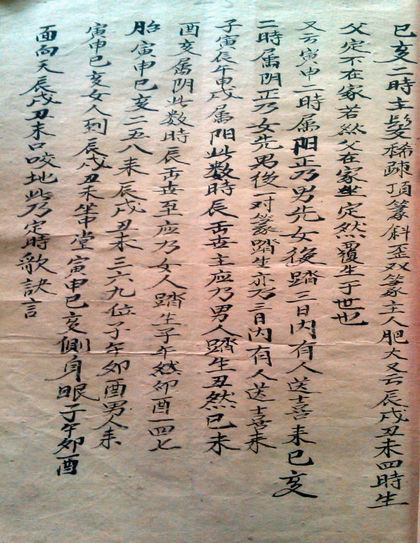 巳亥二时主髮稀踈頂篆斜歪双篆主人肥大又云辰戌丑未四时生
父定不在家若然父在家坐定然覆生于世也
又云寅申二時属阳正乃男先女後踏三日内有人送喜来巳亥
二時属阴正乃女先男後一对篆踏生亦乃三日内有人送喜来
子寅辰午申戌属阳此数時辰出世主应乃男人踏生丑然巳未
酉亥属阴此数時辰出世至应乃女人踏生子午线卯酉一四七
胎寅申巳亥二五八来辰戌丑未三六九位子午卯酉男人来
寅申巳亥女人到辰戌丑未華堂寅申巳亥侧身眠子午卯酉
面向天辰戌丑未口咬地此乃定時歌訣言